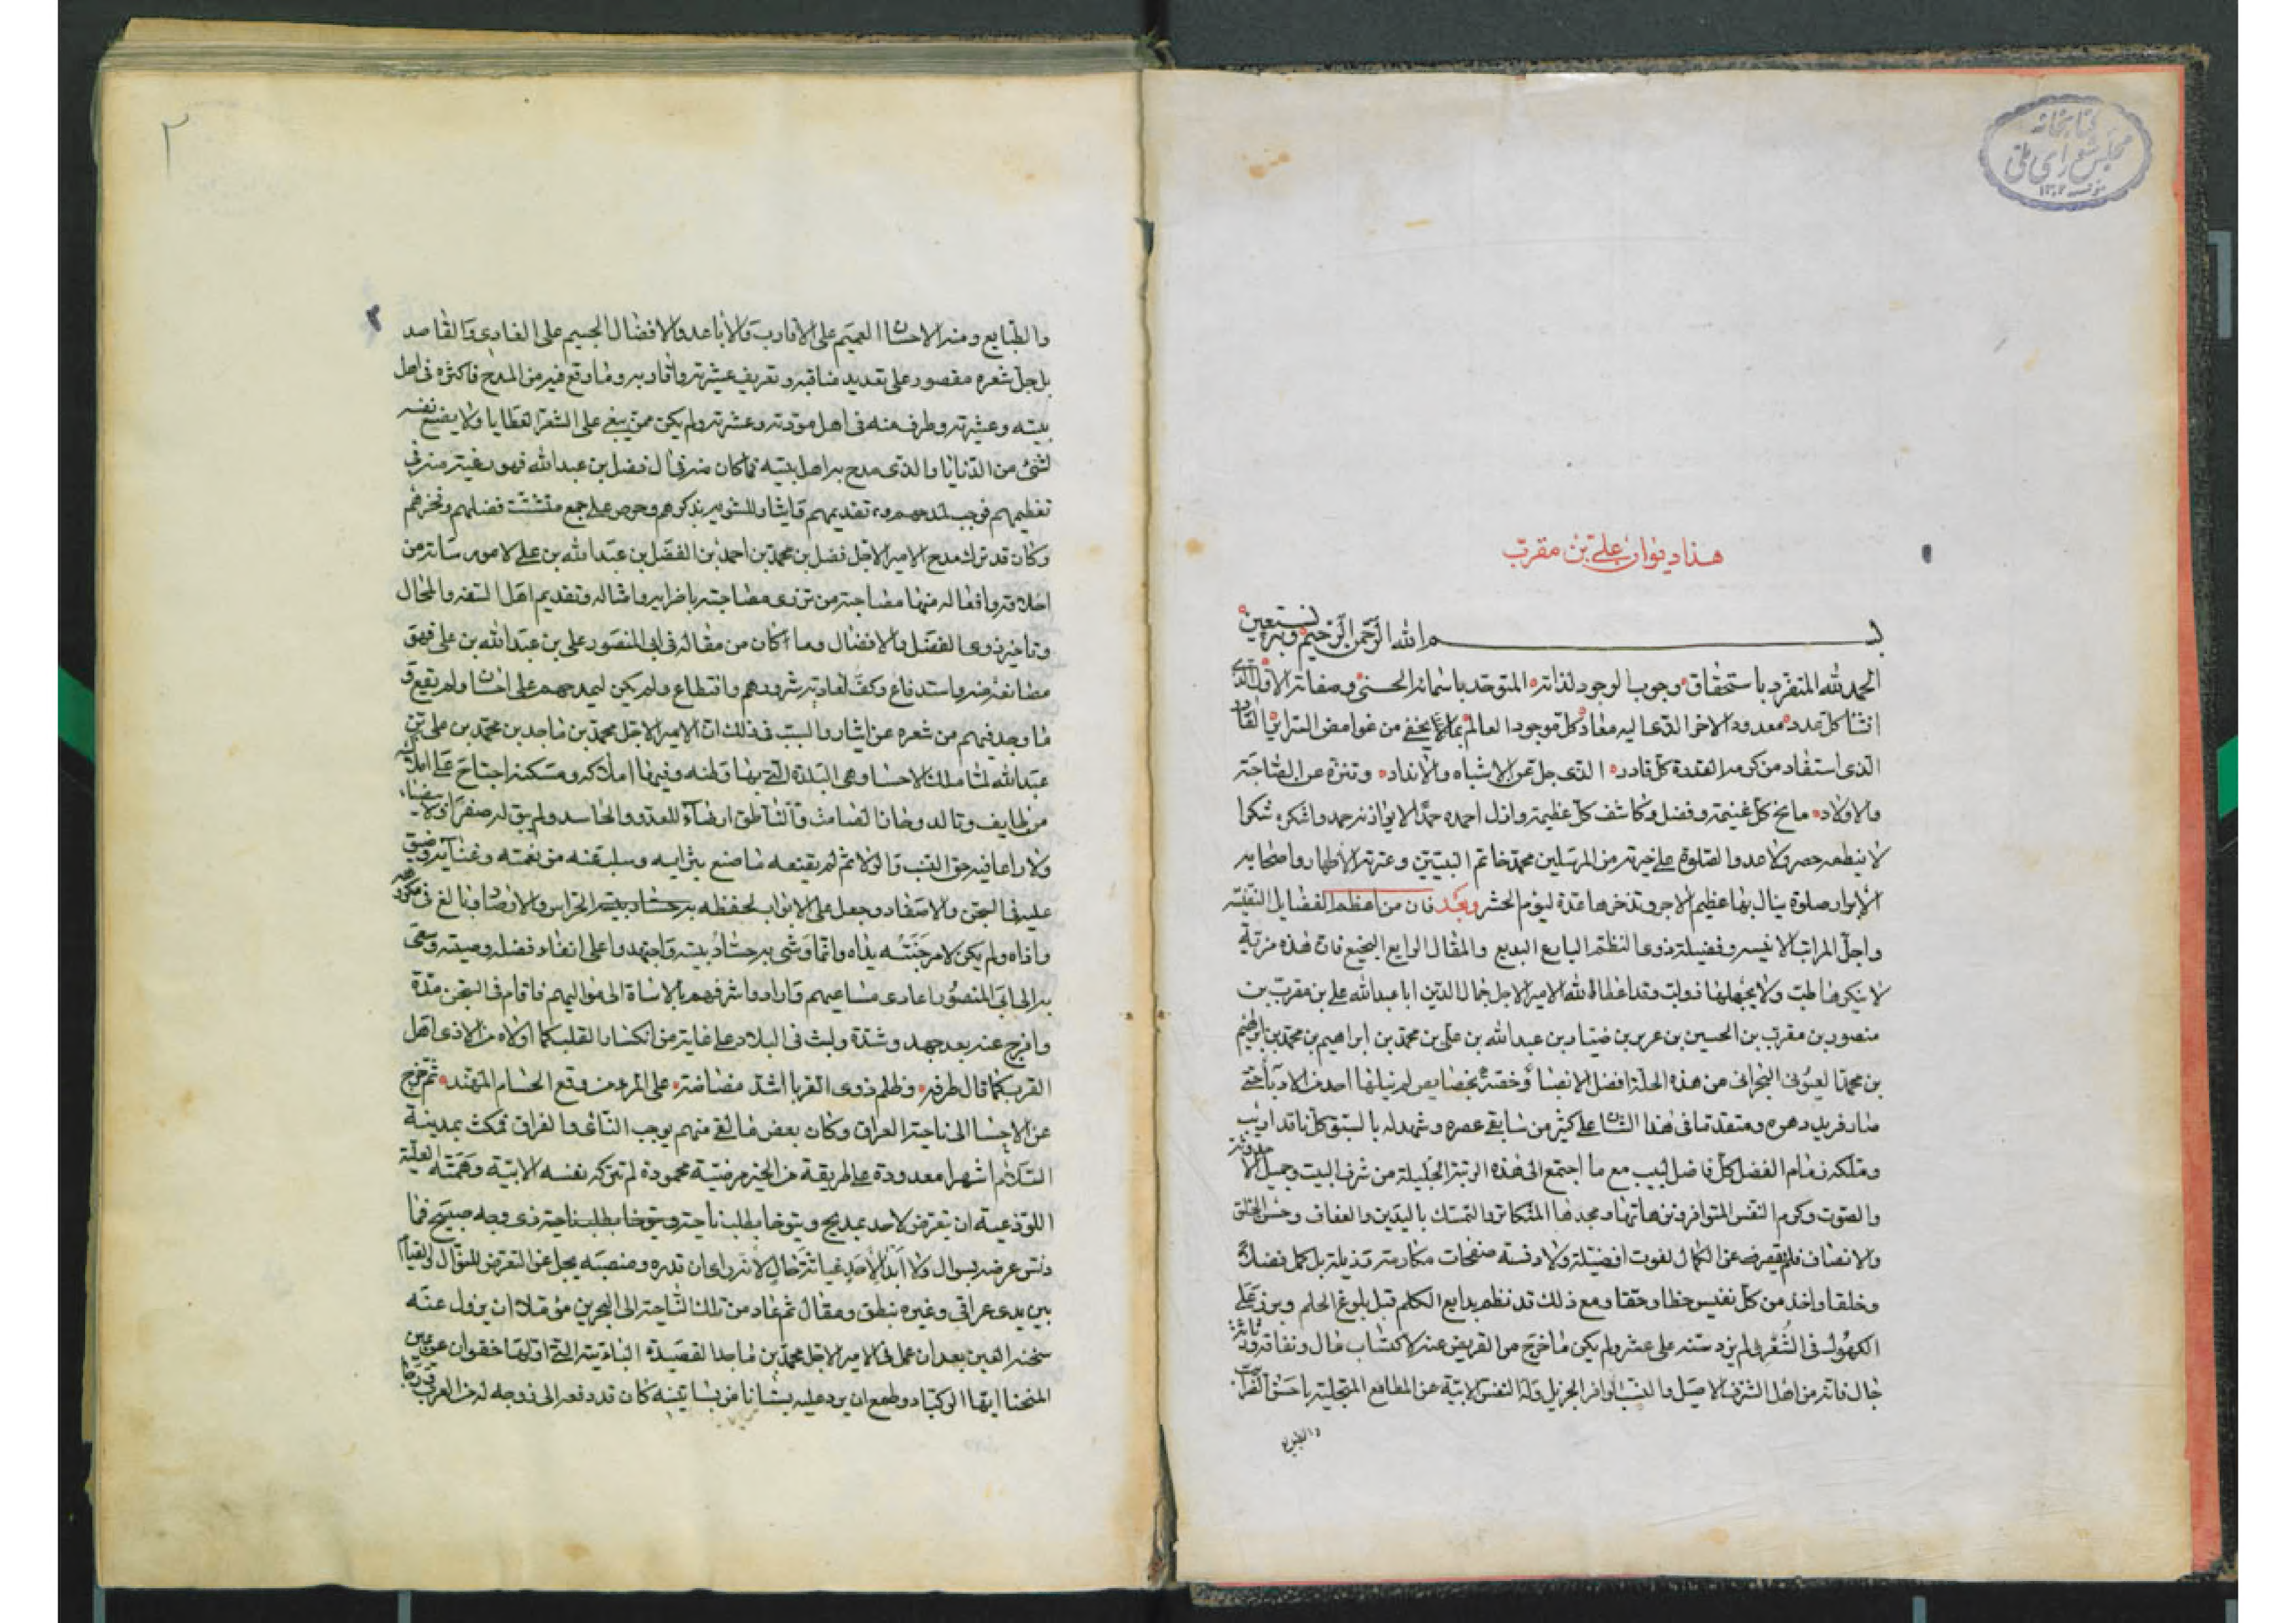 كتابخانه
مجلس شورای ملی
هذا ديوان علي بن مقرب
بسم الله الرحمن الرحيم وبه نستعين
الحمد لله المتفرد باستحقاق وجوب الوجود لذاته المتوحد باسمائه الحسنى وصفاته الاول الذى
انشا كل عدد معدود الاخر الذى اليه معاد كل موجود العالم بما لا يخفى من غوامض السراير القادر
الذى استفاد من كرمه القدرة كل قادر الذى جل عن الاشباه والانداد وتنزه عن الصاحبة
والاولاد مانح كل غنيمة وفضل وكاشف كل عظيمة وازل احمده حمدا لا يوازنه حمد واشكره شكرا
لا ينطعه حصر ولا عد والصلوة على خيرته من المرسلين محمد خاتم النبيين وعترته الاطهار واصحابه
الابرار صلوة ينال بها عظيم الاجر وتدخرها عدة ليوم الحشر وبعد فان من اعظم الفضايل النفيسة
واجل المراتب الانيسه وفضيلة ذوى النظم البارع البديع والمقال الرايع فان هذه مرتبة
لا ينكرها طب ولا يجهلها ذو لب وقد اعطا الله الامير الاجل جمال الدين ابا عبدالله علي بن مقرب بن
منصور بن مقرب بن الحسين بن عرير بن ضباد بن عبد الله بن علي بن محمد بن ابراهيم بن محمد بن ابراهيم
بن محمد العيونى البحرانى من هذه الحلة افضل الانصبا وخصه بخصايص لم ينلها احد من الادبا حتى
صار فريد دهره ومتقدما فى هذا الشان على كثير من سابقى عصره وشهد له بالسبق كل ناقد اديب
وملكه زمام الفضل كل فاضل لبيب مع ما اجتمع الى هذه الرتبة الجليلة من شرف البيت وجميل الاحدوثة
والصوت وكرم النفس المتوافر ونزهاتها ومجدها المتكاثر والتمسك بالدين والعفاف وحسن الخلق
والانصاف فلم يقصر به عن الكمال لفوت افضيلة ولا دنسه صفحات مكارمه رذيلة بل كمل فضلا
وخلقا واخذ من كل نفيس حظا وحقا ومع ذلك قد نظم بدايع الكلم قبل بلوغ الحلم وبرز على
الكهول فى الشعر لم يزد سنه على عشر ولم يكن ما خرج من القريض عنه لاكتساب مال ونفاق رثاثة
حال فانه من اهل الشرف الاصيل والنسب الوافر الجزيل وله النفس الابية عن المطامع المتحلية باحسن
والطبايع
٢
والطبايع ومنه الاحسان العميم على الاقارب والاباعد والافضال الجسيم على الغادى والقاصد
بل جل شعره مقصور على تعديد مناقبه وتعريف عشيرته واقاربه وما وقع فيه من المدح فاكثره فى اهل
بيته وعشيرته وطرف منه فى اهل مودته وعشرته ولم يكن ممن يبغى على الشعر العطايا ولا يضع نفسه
لشئ من الدنايا والذى مدح به اهل بيته مما كان منه فى ال فضل بن عبدالله فهو رغبة منه فى
تعظيمهم فوجب تقديمهم وايثار للتنويه بذكرهم وحرص على جمع متشتت فضلهم وفخرهم
وكان قد ترك مدح الامير الاجل فضل بن محمد بن احمد بن الفضل بن عبدالله بن علي لامور ساته من
اخلاقه وافعاله منها مصاحبة من تزرى مصاحبته باضرابه وامثاله وتقديم اهل السفه والمحال
وتاخير ذوى الفضل والافضال وما كان من مقاله فى ابى المنصور علي بن عبدالله بن علي فهو
مصانعة منه واستدفاع وكف لعادية شرورهم واقتطاع ولم يكن ليمدحهم على احسان ولم يقع
ما وجد فيهم من شعره عن ايثار والسبب فى ذلك ان الامير الاجل محمد بن ماجد بن محمد بن علي بن
عبدالله لما ملك الاحسا وهى البلدة التى بها وطنه وفيها املاكه ومسكنه اجتاح
من طايف وتالد وحاز الصامت والناطق ارضاء للعدو والحاسد ولم يبق له صفراء ولا بيضاء
ولا راعا فيه حق النسب والولا ثم لم يقنعه ما صنع بثرايه وسلبه منه من نعمته وغنايه
عليه فى السجن والاصفاد وجعل على الابواب لحفظه الحراس والارصاد وبالغ فى
واذاه ولم يكن لامر جنته يداه وانما وشى به حساد بيته واجتهدوا على انفاد فضله وصيته وسعى
به الى ابى المنصور اعادى مساعيهم وارادوا شرفهم بالاساة الى مواليهم فاقام فى السجن مدة
وافرج عنه بعد جهد وشدة ولبث فى البلاد على غاية من انكسار القلب كما اولاه من الاذى اهل
القرب كما قال طرفه وظلم ذوى القربا اشد مضاضة على المرء من وقع الحسام المهند ثم خرج
عن الاحسا الى ناحية العراق وكان بعض ما لقى منهم يوجب التنائى والفراق فمكث بمدينة
السلام اشهرا معدودة على طريقة من الخير مرضية محمودة لم تتركه نفسه الابية وهمته العلية
اللوذعية ان يتعرض لاحد بمديح ويتوخا بطلب ناحية ذى وجه صبيح فما
دنس عرضه بسوال ولا ابدا لاحد غثاثة حال لانه راى ان قدره ومنصبه يجل عن التعرض للنوال والقيام
بين يدى عراقى وغيره بنطق ومقال ثم عاد من تلك الناحية الى البحرين موملا ان يزول عنه
سخنه العين بعد ان عمل فى الامير الاجل محمد بن ماجد القصيدة البائية التى اولها خقوان عن يمين
المنحنا ايها الركبا وطمع ان يرد عليه بستانا من بساتينه كان قد دفعه الى زوجه له من العرب